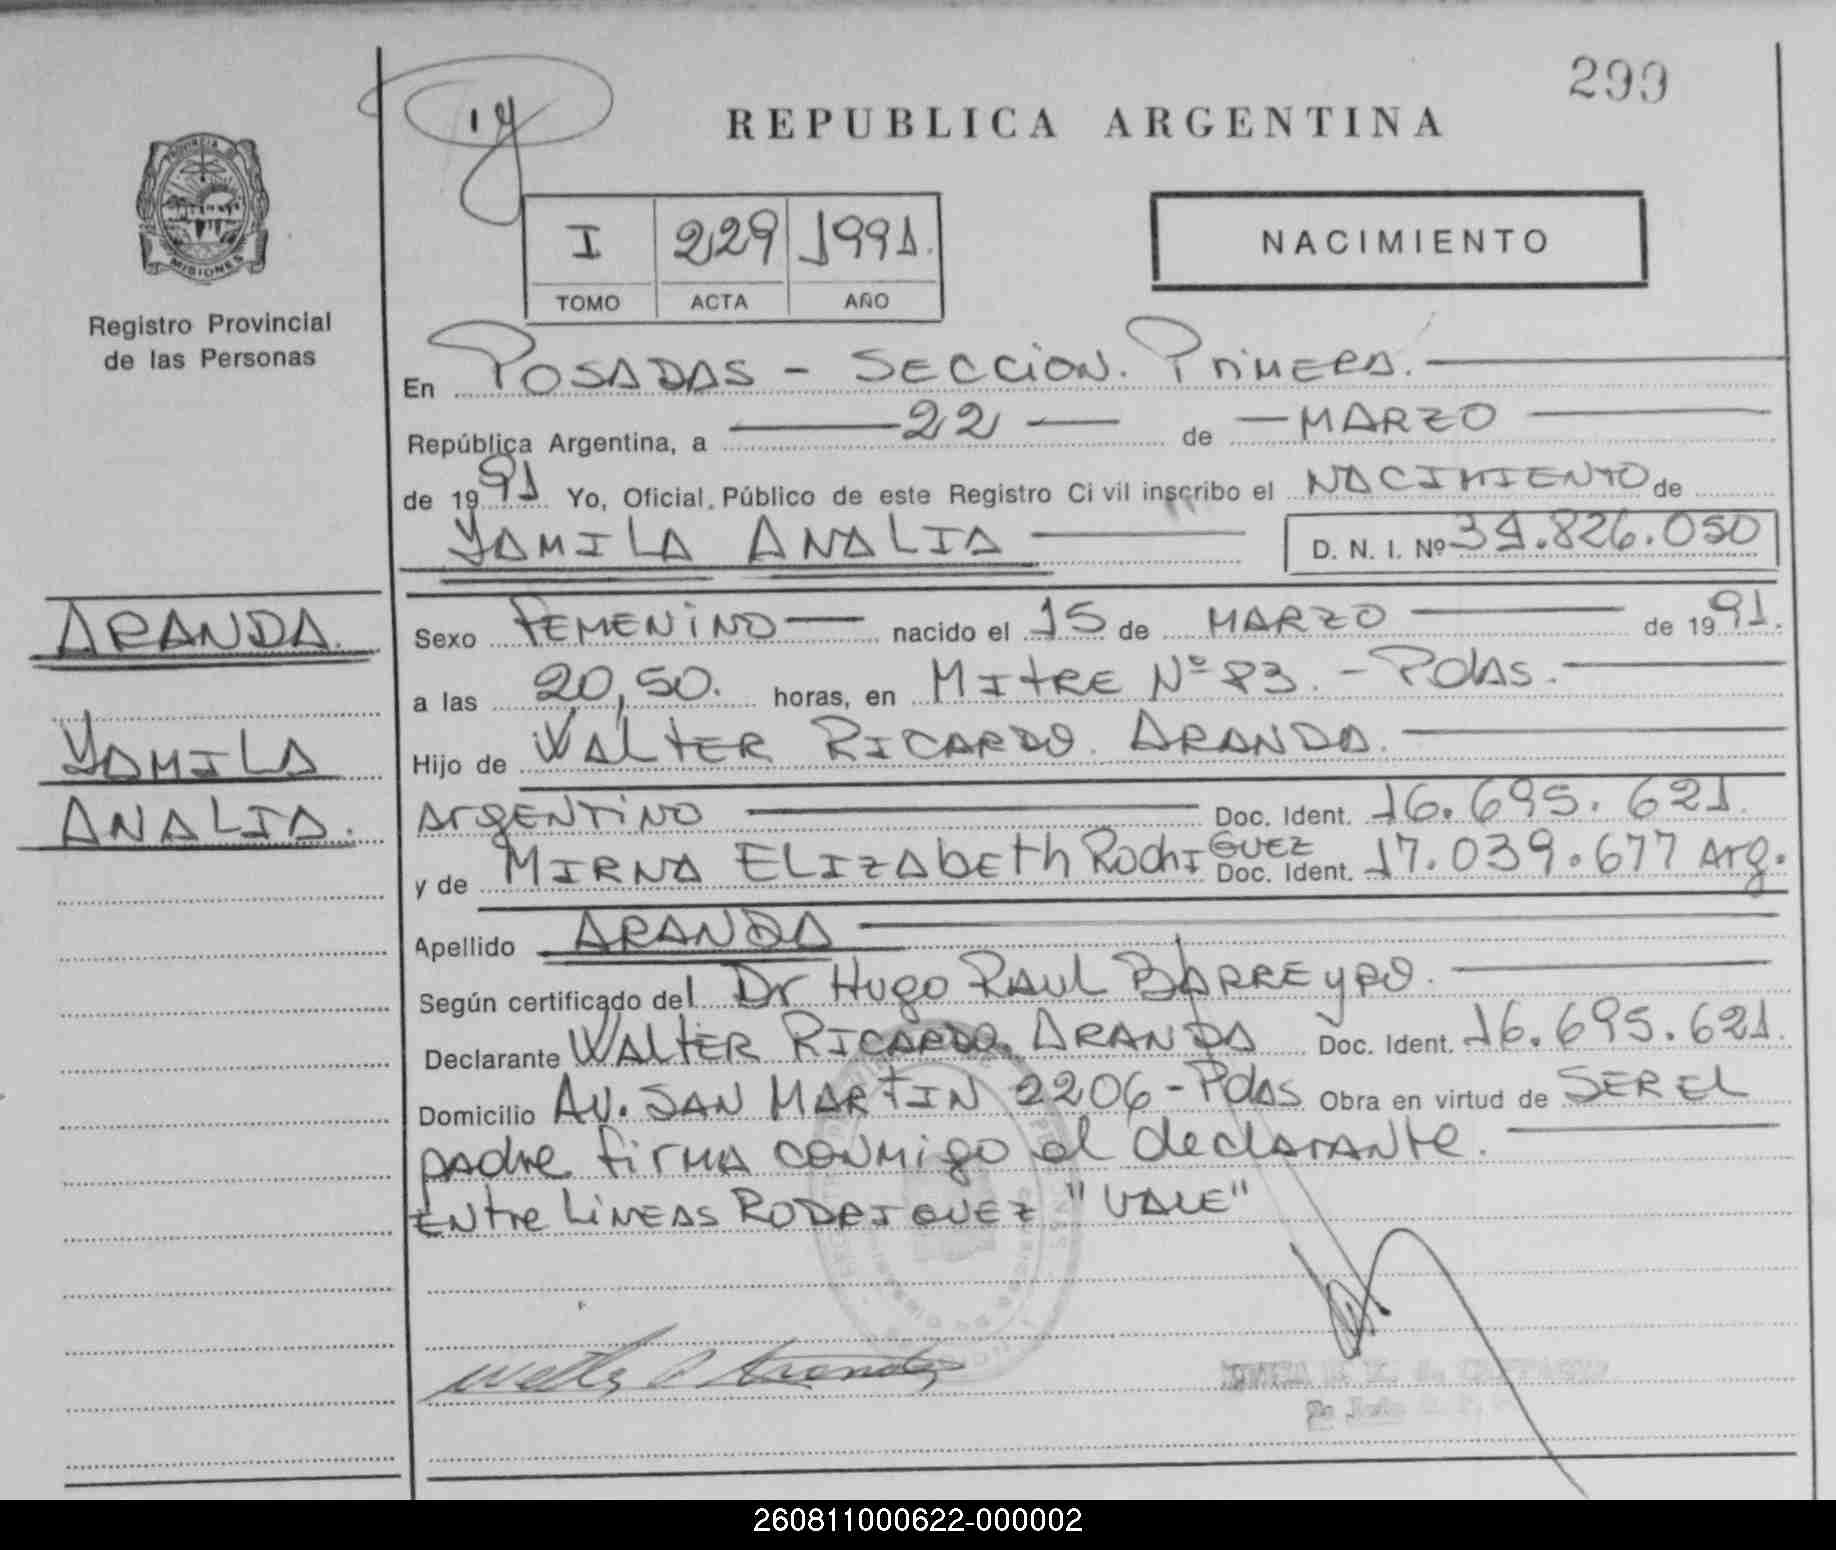 299
19
REPUBLICA ARGENTINA
PROVINCIA DE
MISIONES
Registro Provincial
de las Personas
I 229 1991.
TOMO ACTA AÑO
NACIMIENTO
En POSADAS - SECCION. PRIMERA.
República Argentina, a 22 de MARZO
de 1991 Yo, Oficial Público de este Registro Civil inscribo el NACIMIENTO de
YAMILA ANALIA D. N. I. Nº 34.826.050
ARANDA.
YAMILA
ANALIA.
Sexo FEMENINO nacido el 15 de MARZO de 1991.
a las 20,50. horas, en MITRE Nº 83. - Pdas.
Hijo de WALTER RICARDO. ARANDA.
ARGENTINO Doc. Ident. 16.695.621.
y de MIRNA ELIZABETH RodRIGUEZ Doc. Ident. 17.039.677 Arg.
Apellido ARANDA
Según certificado del Dr HUGO RAUL BARREYRO.
Declarante WALTER RICARDO. ARANDA Doc. Ident. 16.695.621.
Domicilio AV. SAN MARTIN 2206 - Pdas Obra en virtud de SER EL
padre firma conmigo el declarante.
Entre Lineas RODRIGUEZ "VALE"
260811000622-000002